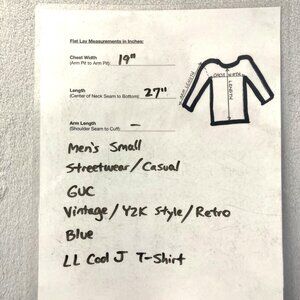 Flat Lay Measurements in Inches:
Chest Width 19"
(Arm Pit to Arm Pit):
Length 27"
(Center of Neck Seam to Bottom):
Arm Length –
(Shoulder Seam to Cuff):
ARM LENGTH
CHEST WIDTH
LENGTH
Men's Small
Streetwear/Casual
GUC
Vintage/Y2K Style/Retro
Blue
LL Cool J T-Shirt